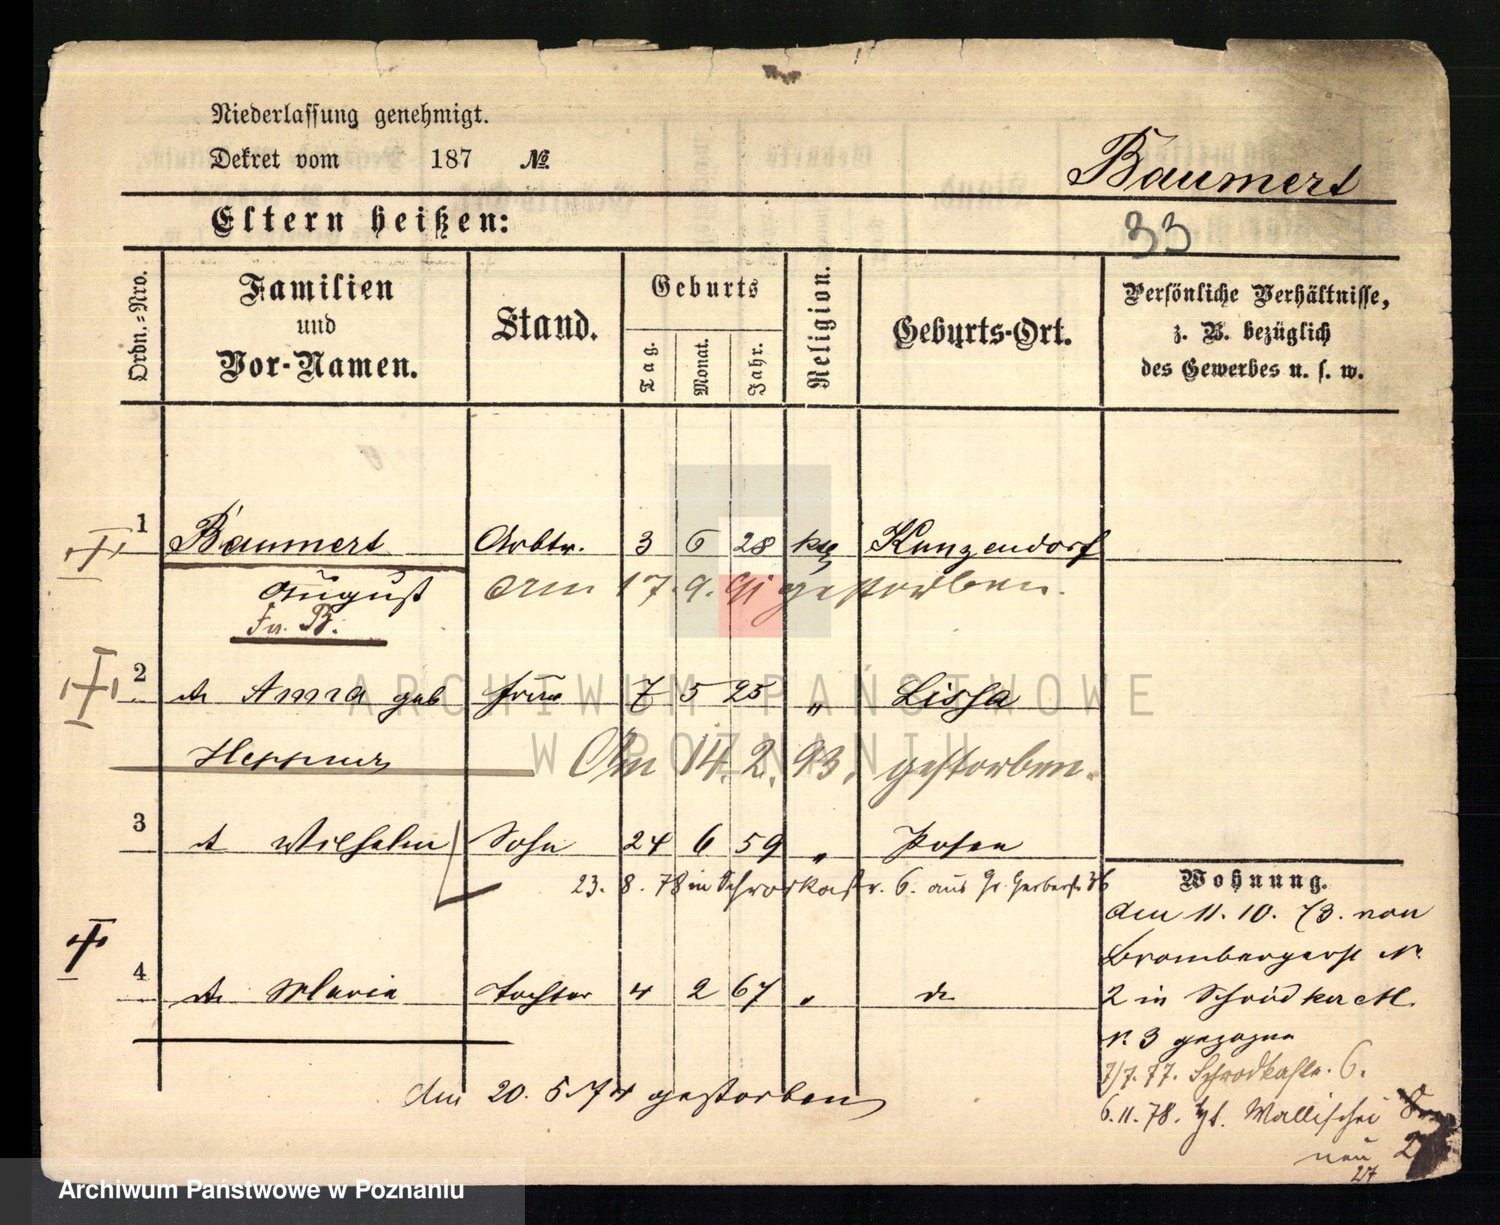 Niederlassung genehmigt.
Dekret vom 187 №
Baumert
Eltern heißen:
33
Ordn.-Nro.
Familien und Vor-Namen.
Stand.
Geburts
Tag.
Monat.
Jahr.
Religion.
Geburts-Ort.
Persönliche Verhältnisse,
z. B. bezüglich
des Gewerbes u. s. w.
1 Baumert Arbtr. 3 6 28 kth Kunzendorf
August Am 17. 9. 91 gestorben.
Fr. B.
2 do Anna geb Frau 7 5 25 " Lissa
Heppner Am 14. 2. 93. gestorben.
3 do Wilhelm Sohn 24 6 59 " Posen
23. 8. 78 in Schrodkastr. 6. aus Gr. Gerberstr 36
4 do Maria Tochter 4 2 67 " do
den 20. 5. 74 gestorben
Wohnung.
den 11. 10. 73. von
Brombergerst №
2 in Schrodka M.
N. 3 gezogen
7/7. 77. Schrodkastr. 6.
6. 11. 78. Wallischei
neu 2
27
ARCHIWUM PAŃSTWOWE
W POZNANIU
Archiwum Państwowe w Poznaniu